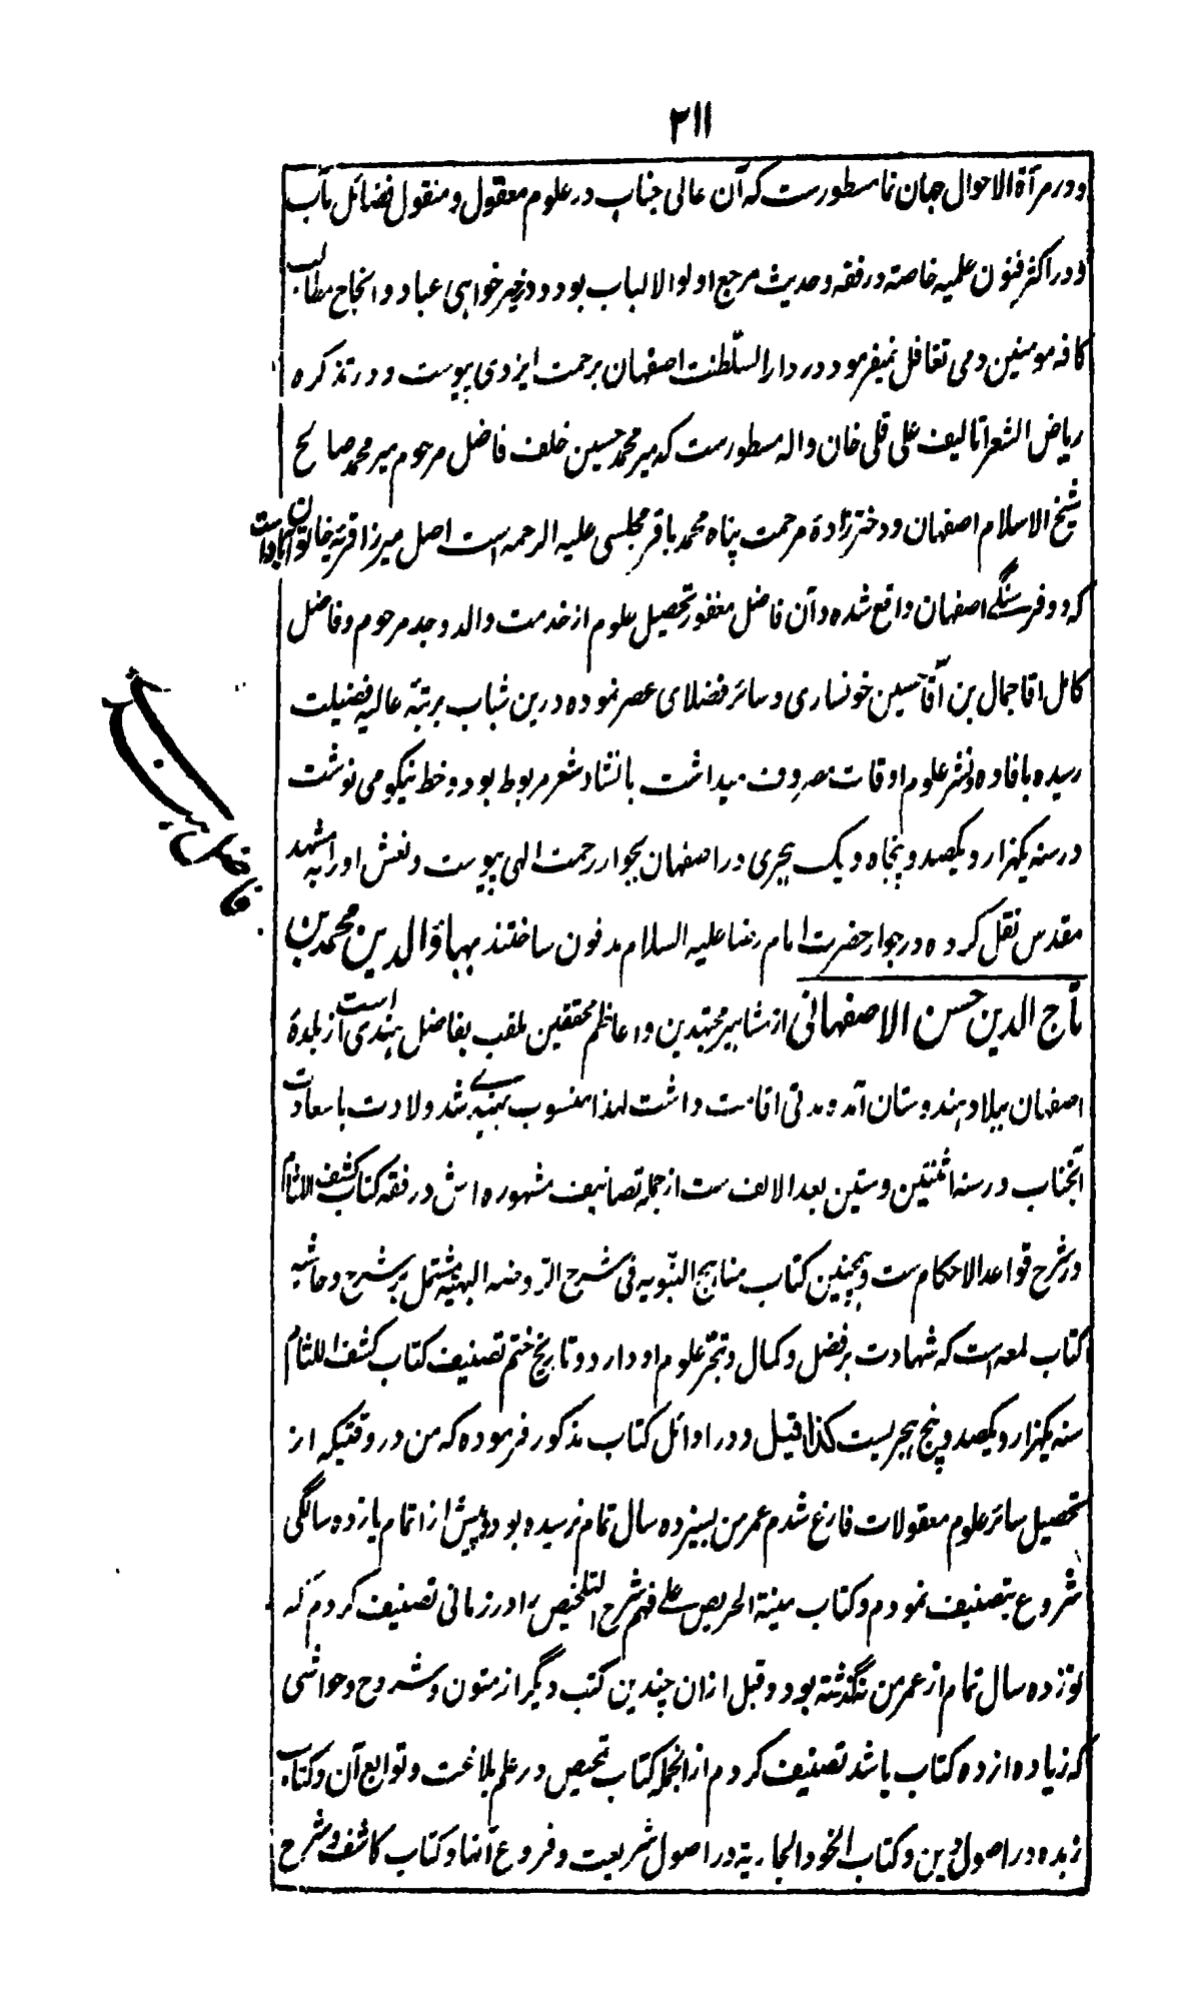 ۲۱۱
و در مرآة الاحوال جهان نما مسطورست که آن عالی جناب در علوم معقول و منقول فضائل مآب
و در اکثر فنون علمیه خاصة در فقه و حدیث مرجع اولوا الالباب بود و در خیر خواهی عباد و انجاح مطالب
کافه مومنین دمی تغافل نمیفرمود در دار السّلطنت اصفهان برحمت ایزدی پیوست و در تذکره
ریاض الشعرا تالیف علی قلی خان واله مسطورست که میر محمد حسین خلف فاضل مرحوم میر محمد صالح
شیخ الاسلام اصفهان و دختر زادهٔ مرحمت پناه محمد باقر مجلسی علیه الرحمه است اصل میرزا قریهٔ خاتون آباداست
که دو فرسنگے اصفهان واقع شده و آن فاضل مغفور تحصیل علوم از خدمت والد و جد مرحوم و فاضل
کامل اقا جمال بن آقا حسین خونساری و سائر فضلای عصر نموده درین شباب برتبهٔ عالیه فضیلت
رسیده بافاده و نشر علوم اوقات مصروف میداشت بانشاد شعر مربوط بود و خط نیکو می نوشت
در سنه یکهزار و یکصد و پنجاه و یک هجری در اصفهان بجوار رحمت الهی پیوست و نعش او را به مشهد
مقدس نقل کرده در جوار حضرت امام رضا علیه السلام مدفون ساختند بهاؤ الدین محمد بن
تاج الدین حسن الاصفهانی از مشاهیر مجتهدین و اعاظم محققین ملقب بفاضل هندی است از بلدهٔ
اصفهان ببلاد هندوستان آمد و مدتی اقامت داشت لهذا منسوب بهند شد ولادت باسعادت
آنجناب در سنه اثنتین وستین بعد الالف ست از جمله تصانیف مشهوره اش در فقه کتاب کشف اللثام
در شرح قواعد الاحکام ست و همچنین کتاب مناهج النّبویه فی شرح الرّوضه البهیّه مشتمل بر شرح و حاشیه
کتاب لمعه است که شهادت بر فضل و کمال و تبحّر علوم او دارد و تاریخ ختم تصنیف کتاب کشف اللثام
سنه یکهزار و یکصد و پنج هجریست کذا قیل و در اوائل کتاب مذکور فرموده که من در وقتیکه از
تحصیل سائر علوم معقولات فارغ شدم عمر من بسیزده سال تمام نرسیده بود و پیش از اتمام یازده سالگی
شروع بتصنیف نمودم و کتاب منیة الحریص علے فهم شرح التلخیص را در زمانی تصنیف کردم که
نوزده سال تمام از عمر من نگذشته بود و قبل ازان چندین کتب دیگر از متون و شروح و حواشی
که زیاده از ده کتاب باشد تصنیف کردم از انجمله کتاب تمحیص در علم بلاغت و توابع آن و کتاب
زبده در اصول دین و کتاب الخود البخاریة در اصول شریعت و فروع آنها و کتاب کاشف و شرح
فاضل هندی